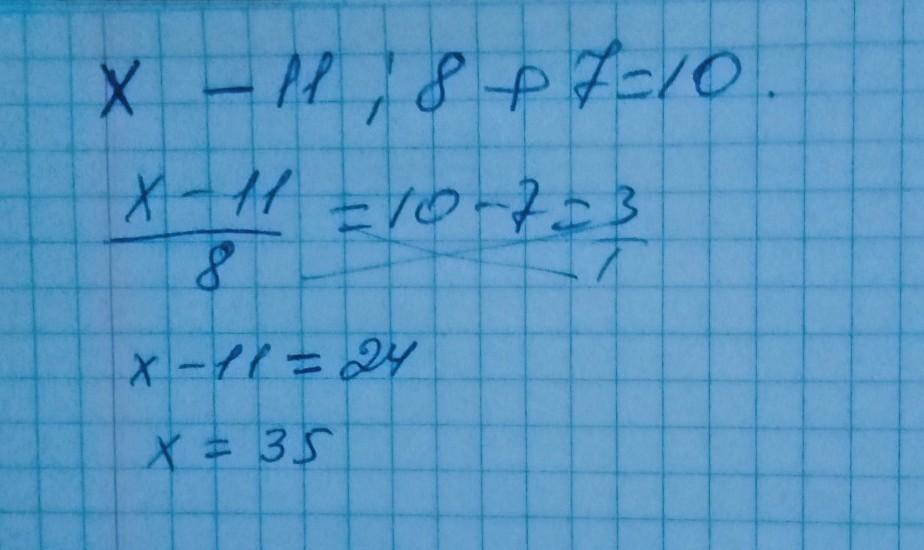 x - 11 : 8 + 7 = 10.
x - 11 / 8 = 10 - 7 = 3 / 1
x - 11 = 24
x = 35